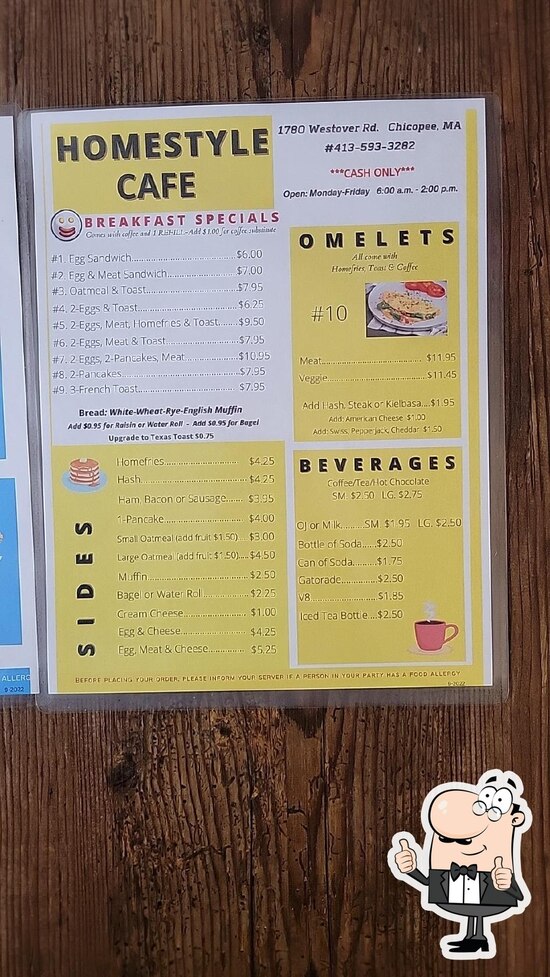 HOMESTYLE
CAFE
1780 Westover Rd. Chicopee, MA
#413-593-3282
***CASH ONLY***
Open: Monday-Friday 6:00 a.m. - 2:00 p.m.
BREAKFAST SPECIALS
Comes with coffee and 1 REFILL - Add $1.00 for coffee substitute
#1. Egg Sandwich $6.00
#2. Egg & Meat Sandwich $7.00
#3. Oatmeal & Toast $7.95
#4. 2-Eggs & Toast $6.25
#5. 2-Eggs, Meat, Homefries & Toast $9.50
#6. 2-Eggs, Meat & Toast $7.95
#7. 2-Eggs, 2-Pancakes, Meat $10.95
#8. 2-Pancakes $7.95
#9. 3-French Toast $7.95
Bread: White-Wheat-Rye-English Muffin
Add $0.95 for Raisin or Water Roll - Add $0.95 for Bagel
Upgrade to Texas Toast $0.75
OMELETS
All come with
Homefries, Toast & Coffee
#10
Meat $11.95
Veggie $11.45
Add Hash, Steak or Kielbasa $1.95
Add: American Cheese $1.00
Add: Swiss, Pepperjack, Cheddar $1.50
SIDES
Homefries $4.25
Hash $4.25
Ham, Bacon or Sausage $3.95
1-Pancake $4.00
Small Oatmeal (add fruit $1.50) $3.00
Large Oatmeal (add fruit $1.50) $4.50
Muffin $2.50
Bagel or Water Roll $2.25
Cream Cheese $1.00
Egg & Cheese $4.25
Egg, Meat & Cheese $5.25
BEVERAGES
Coffee/Tea/Hot Chocolate
SM. $2.50 LG. $2.75
OJ or Milk SM. $1.95 LG. $2.50
Bottle of Soda $2.50
Can of Soda $1.75
Gatorade $2.50
V8 $1.85
Iced Tea Bottle $2.50
BEFORE PLACING YOUR ORDER, PLEASE INFORM YOUR SERVER IF A PERSON IN YOUR PARTY HAS A FOOD ALLERGY
9-2022
ALLERG
9-2022